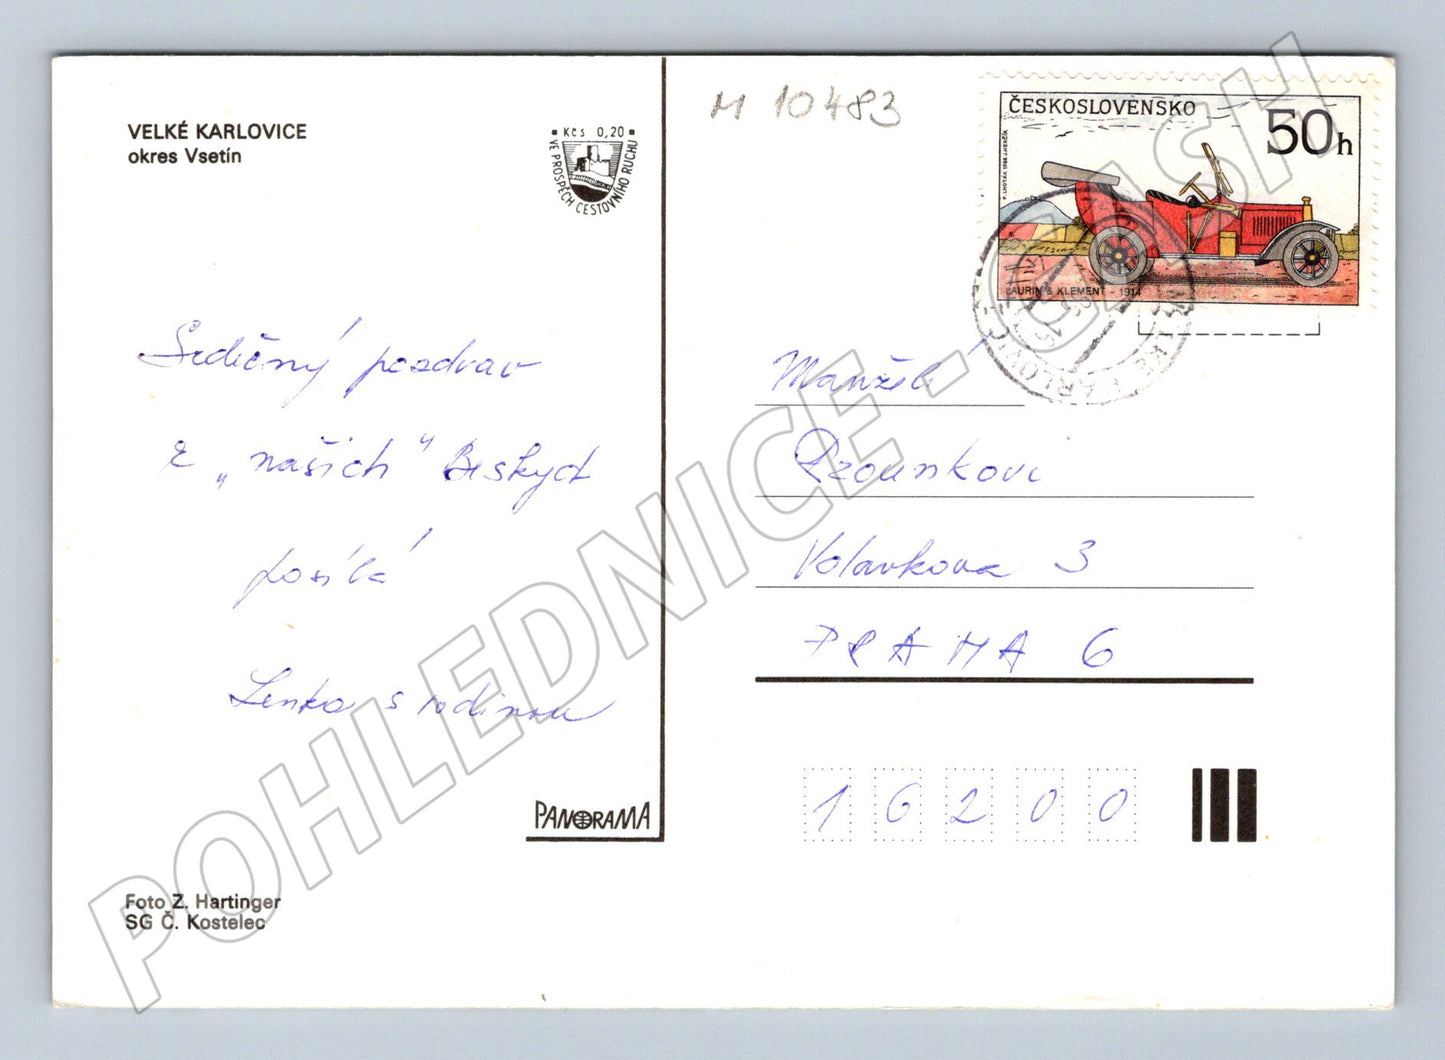 VELKÉ KARLOVICE
okres Vsetín
Kčs 0,20
VE PROSPĚCH CESTOVNÍHO RUCHU
M 10483
ČESKOSLOVENSKO
50h
K. LHOTÁK 1988 J. HERČÍK
LAURIN & KLEMENT - 1914
VELKÉ KARLOVICE
Srdečný pozdrav
z „našich“ Beskyd
posílá
Lenka s rodinou
Manželé
Prounkovi
Volavkova 3
PRAHA 6
16200
PANORAMA
Foto Z. Hartinger
SG Č. Kostelec
POHLEDNICE - CASH